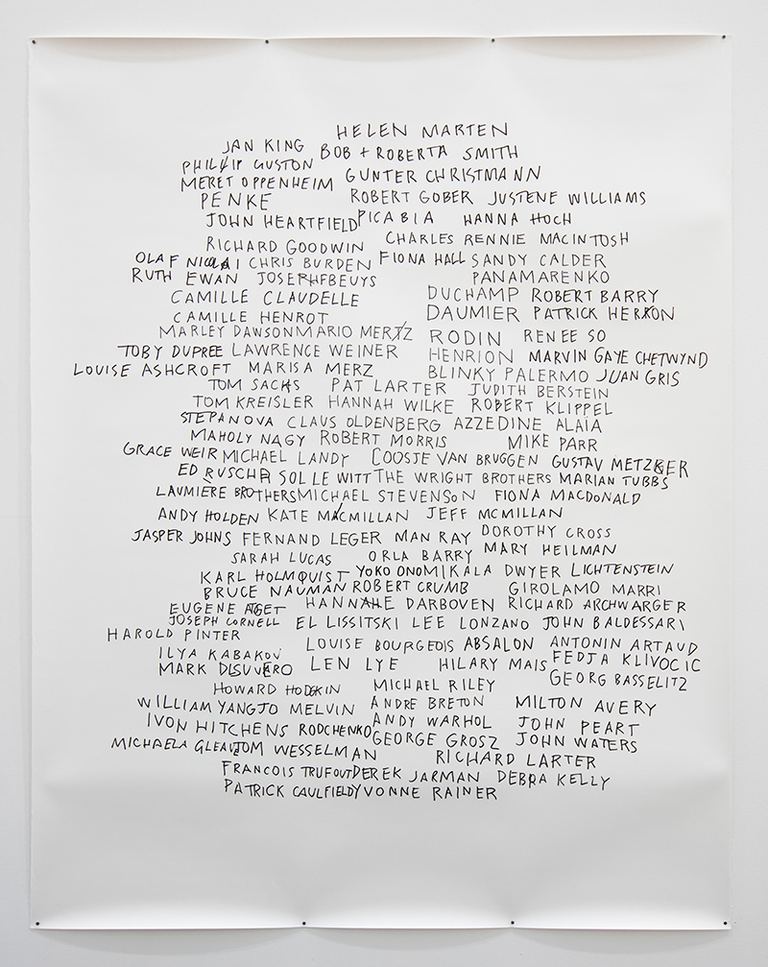 HELEN MARTEN
JAN KING BOB + ROBERTA SMITH
PHILLIP GUSTON GUNTER CHRISTMANN
MERET OPPENHEIM
PENKE ROBERT GOBER JUSTENE WILLIAMS
JOHN HEARTFIELD PICABIA HANNA HOCH
RICHARD GOODWIN CHARLES RENNIE MACINTOSH
OLAF NICOLAI CHRIS BURDEN FIONA HALL SANDY CALDER
RUTH EWAN JOSEPH BEUYS PANAMARENKO
CAMILLE CLAUDELLE DUCHAMP ROBERT BARRY
CAMILLE HENROT DAUMIER PATRICK HERRON
MARLEY DAWSON MARIO MERZ RODIN RENEE SO
TOBY DUPREE LAWRENCE WEINER HENRION MARVIN GAYE CHETWYND
LOUISE ASHCROFT MARISA MERZ BLINKY PALERMO JUAN GRIS
TOM SACHS PAT LARTER JUDITH BERSTEIN
TOM KREISLER HANNAH WILKE ROBERT KLIPPEL
STEPANOVA CLAUS OLDENBERG AZZEDINE ALAIA
MAHOLY NAGY ROBERT MORRIS MIKE PARR
GRACE WEIR MICHAEL LANDY COOSJE VAN BRUGGEN GUSTAV METZGER
ED RUSCHA SOL LE WITT THE WRIGHT BROTHERS MARIAN TUBBS
LAUMIERE BROTHERS MICHAEL STEVENSON FIONA MACDONALD
ANDY HOLDEN KATE MACMILLAN JEFF MCMILLAN
JASPER JOHNS FERNAND LEGER MAN RAY DOROTHY CROSS
SARAH LUCAS ORLA BARRY MARY HEILMAN
KARL HOLMQUIST YOKO ONO MIKALA DWYER LICHTENSTEIN
BRUCE NAUMAN ROBERT CRUMB GIROLAMO MARRI
EUGENE ATGET HANNAHE DARBOVEN RICHARD ARCHWARGER
JOSEPH CORNELL EL LISSITSKI LEE LONZANO JOHN BALDESSARI
HAROLD PINTER LOUISE BOURGEOIS ABSALON ANTONIN ARTAUD
ILYA KABAKOV LEN LYE HILARY MAIS FEDJA KLIVOCIC
MARK DISUVERO GEORG BASSELITZ
HOWARD HODGKIN MICHAEL RILEY
WILLIAM YANG JO MELVIN ANDRE BRETON MILTON AVERY
IVON HITCHENS RODCHENKO ANDY WARHOL JOHN PEART
MICHAELA GLEAVE TOM WESSELMAN GEORGE GROSZ JOHN WATERS
RICHARD LARTER
FRANCOIS TRUFOUT DEREK JARMAN DEBRA KELLY
PATRICK CAULFIELD YVONNE RAINER